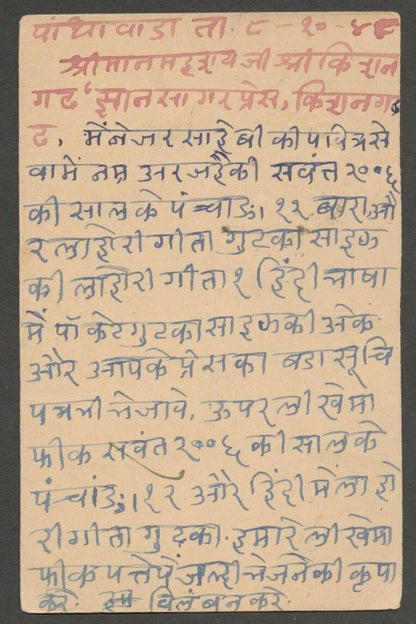 पांथावाडा ता. ८-१०-४८
श्रीमान महाशय जी श्री किशन
गढ 'ज्ञानसागर प्रेस, किशनग
ढ, मेंनेजर साहेबी की पवित्र से
वा में नम्र अरज है की सवंत २००६
की साल के पंचाङ ।, १२ बारा, औ
र लाहोरी गीता गुटका साइज
की लाहोरी गीता १ हिंदी भाषा
में पॉकेट गुटका साइज की अेक
और आपके प्रेस का बडा सूचि
पत्र भी भेजावे, ऊपर लीखे मा
फीक सवंत २००६ की साल के
पंचांङ ।, १२ और हिंदी में ला हो
री गीता गुटका. हमारे लीखे मा
फीक पत्ते पें जल्दी भेजने की कृपा
करे. विलंब न करे.